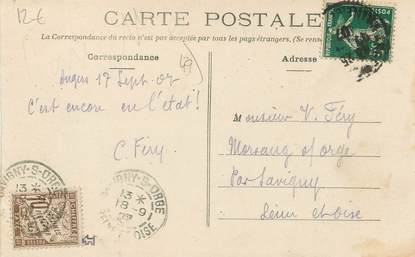 12€
CARTE POSTALE
La Correspondance du recto n'est pas acceptée par tous les pays étrangers.
Correspondance
Adresse
Angers 17 Sept. 07
C'est encore en l'état !
C. Féry
Monsieur V. Féry
Morsang s/ orge
Par Savigny
Seine et oise
SAVIGNY-S-ORGE
13
18 -9
07
SEINE ET OISE
10